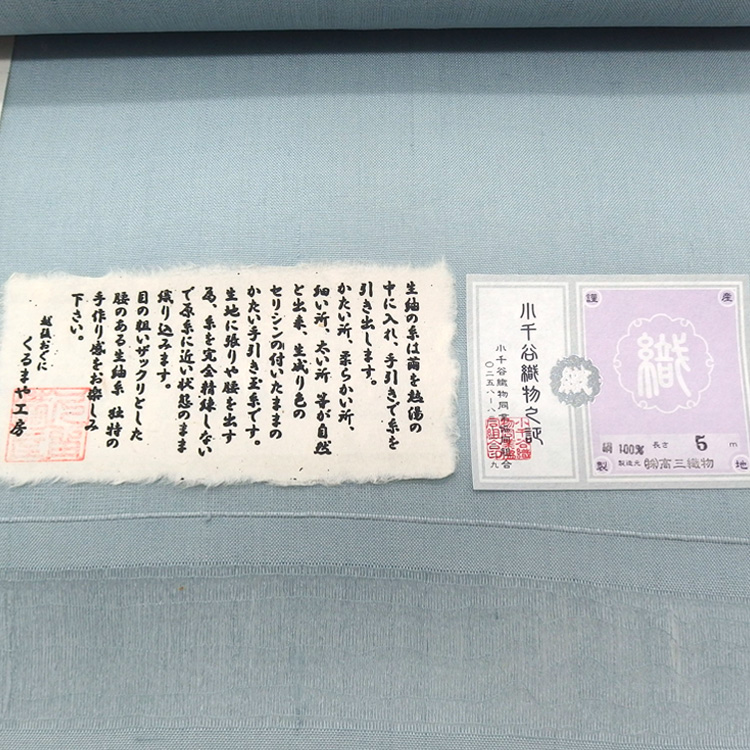 生紬の糸は繭を熱湯の
中に入れ、手引きで糸を
引き出します。
かたい所、柔らかい所、
細い所、太い所 等が自然
と出来、生成り色の
セリシンの付いたままの
かたい手引き玉糸です。
生地に張りや腰を出す
為、糸を完全精練しない
で原糸に近い状態のまま
織り込みます。
目の粗いザックリとした
腰のある生紬糸 独特の
手作り感をお楽しみ
下さい。
越後おぐに
くるまや工房
小千谷織物之証
小千谷織物同業協同組合
謹
産
織
絹 100% 長さ 5 m
製
製造元 ㈱高三織物
地
織